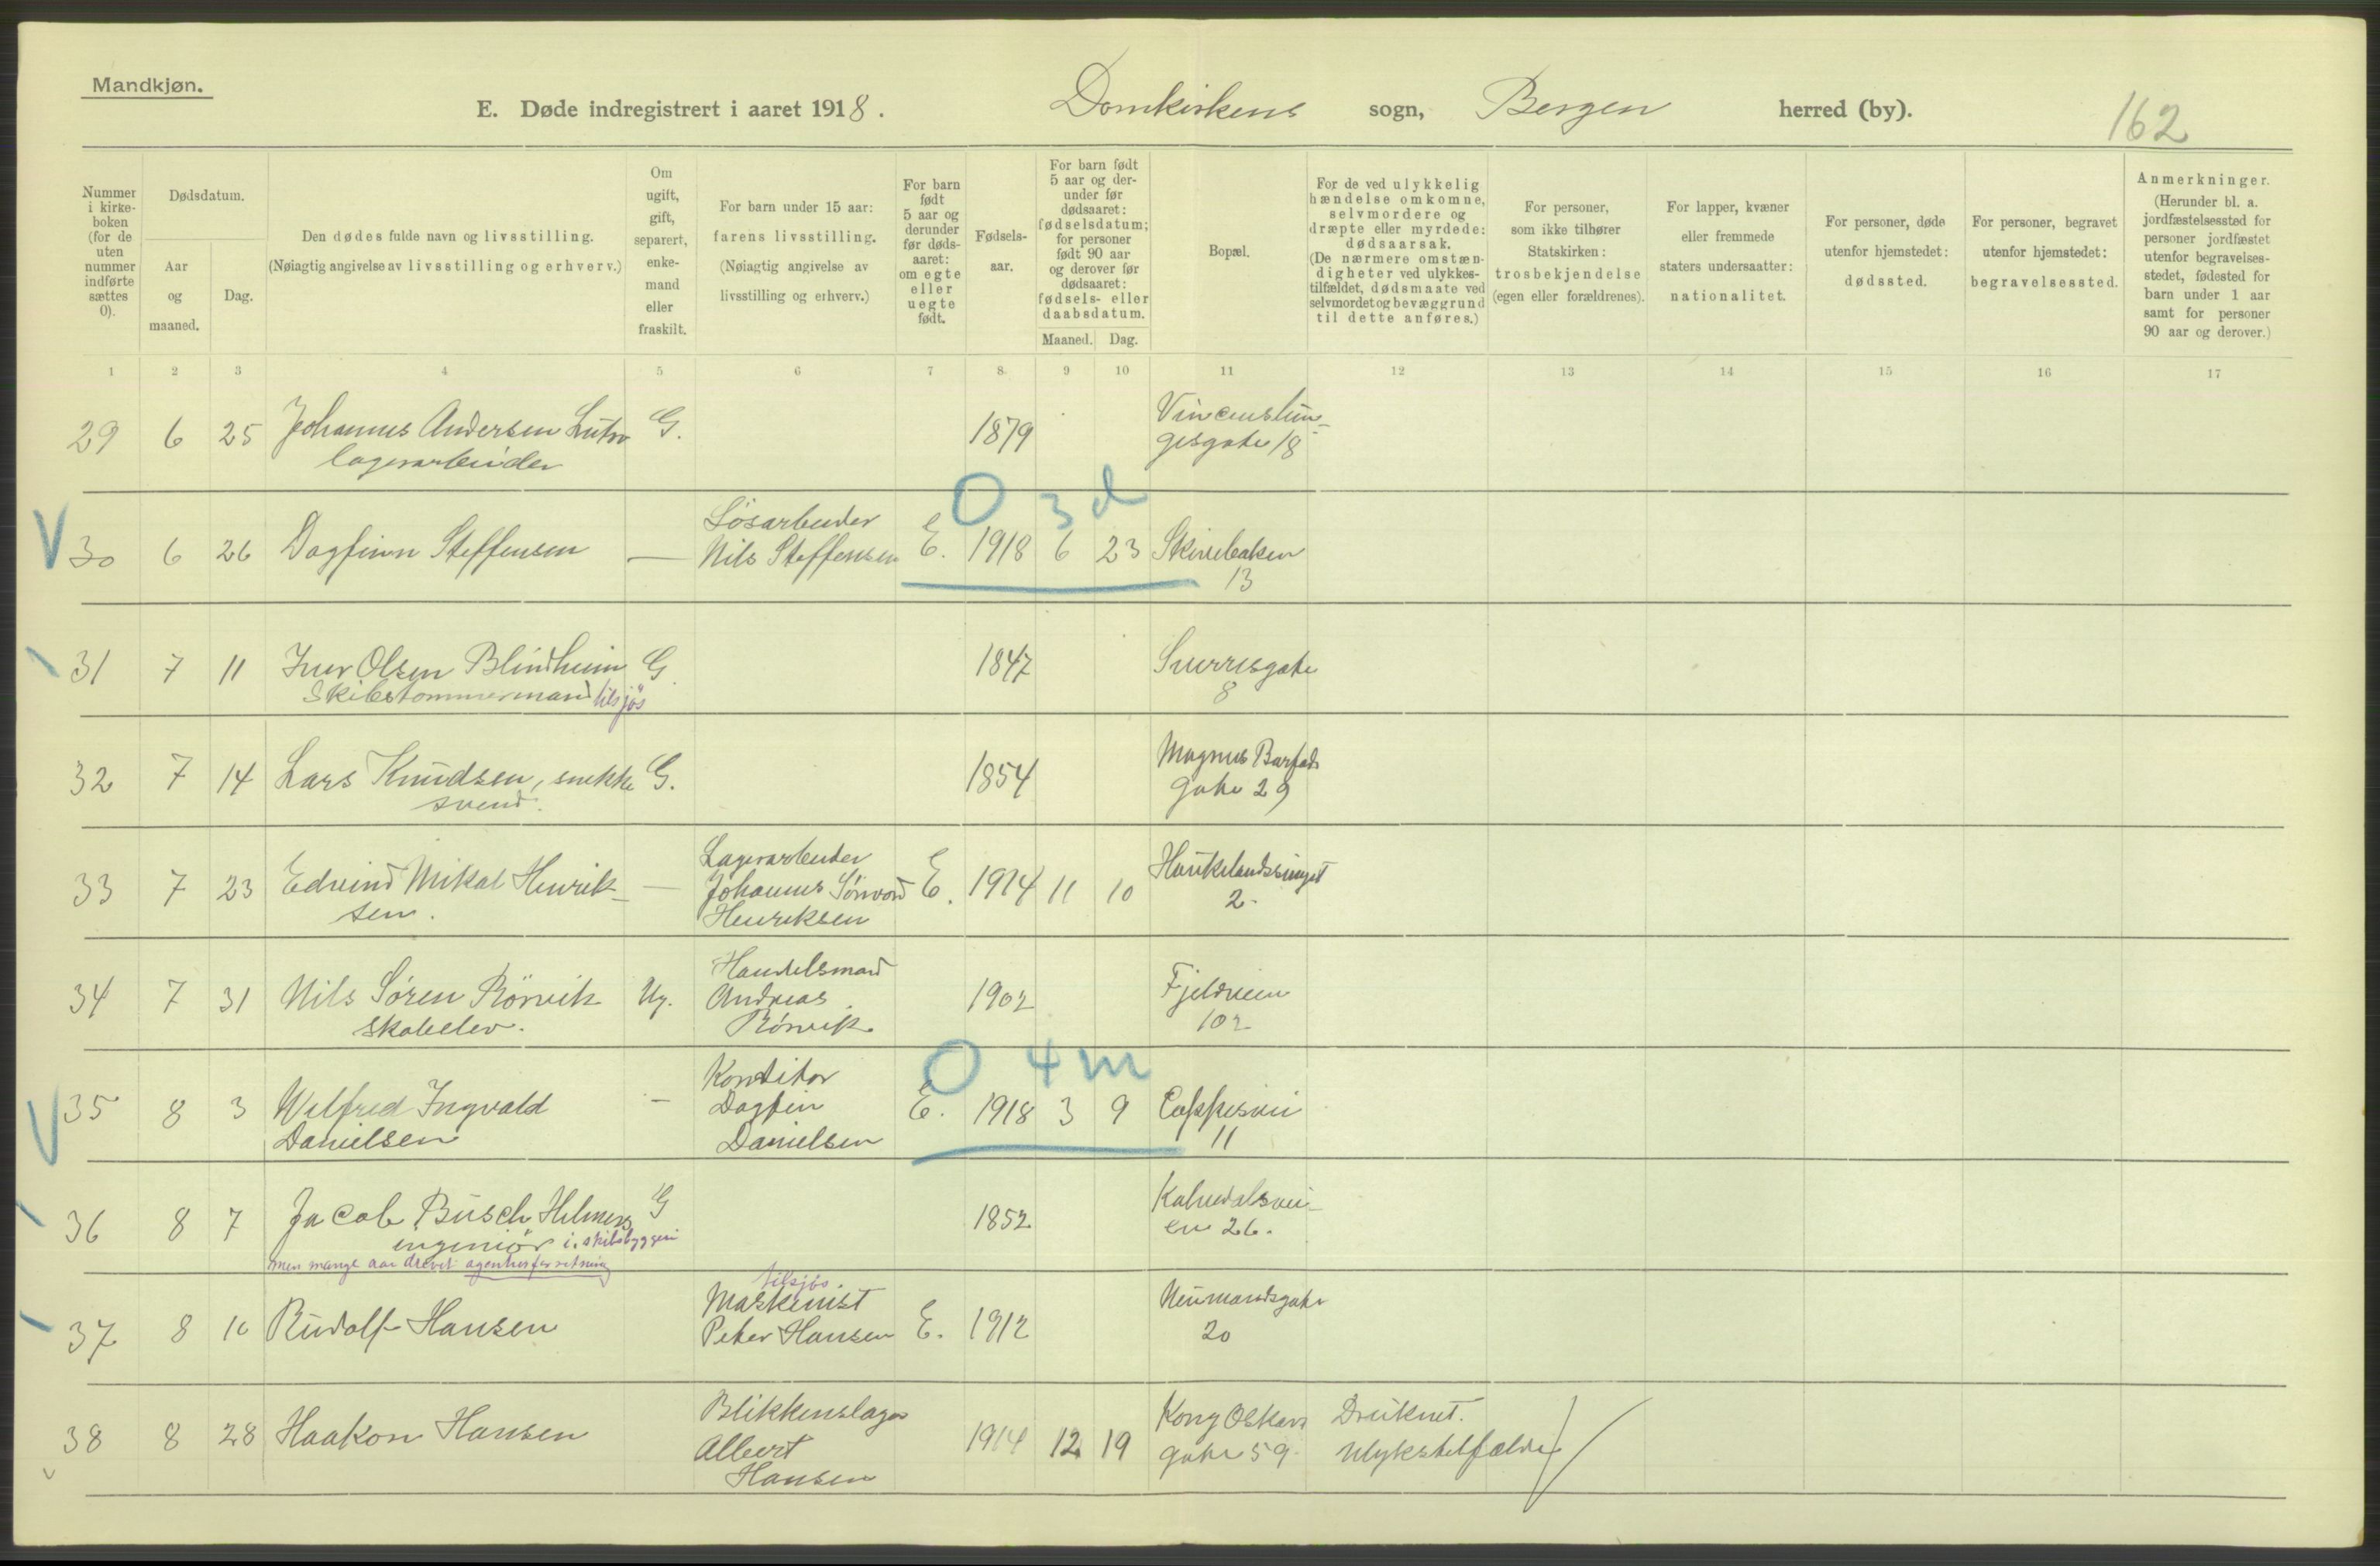 Mandkjøn.
E. Døde indregistrert i aaret 1918. Domkirkens sogn, Bergen herred (by). 162
Nummer i kirke-boken (for de uten nummer indførte sættes 0).
Dødsdatum.
Aar og maaned.
Dag.
Den dødes fulde navn og livsstilling.
(Nøiagtig angivelse av livsstilling og erhverv.)
Om ugift, gift, separert, enke-mand eller fraskilt.
For barn under 15 aar: farens livsstilling.
(Nøiagtig angivelse av livsstilling og erhverv.)
For barn født 5 aar og derunder før døds-aaret: om egte eller uegte født.
Fødsels-aar.
For barn født 5 aar og der-under før dødsaaret: fødselsdatum; for personer født 90 aar og derover før dødsaaret: fødsels- eller daabsdatum.
Maaned. Dag.
Bopæl.
For de ved ulykkelig hændelse omkomne, selvmordere og dræpte eller myrdede: dødsaarsak.
(De nærmere omstæn-digheter ved ulykkes-tilfældet, dødsmaate ved selvmordet og bevæggrund til dette anføres.)
For personer, som ikke tilhører Statskirken: trosbekjendelse (egen eller forældrenes).
For lapper, kvæner eller fremmede staters undersaatter: nationalitet.
For personer, døde utenfor hjemstedet: dødssted.
For personer, begravet utenfor hjemstedet: begravelsessted.
Anmerkninger.
(Herunder bl. a. jordfæstelsessted for personer jordfæstet utenfor begravelses-stedet, fødested for barn under 1 aar samt for personer 90 aar og derover.)
1 2 3 4 5 6 7 8 9 10 11 12 13 14 15 16 17
29 6 25 Johannes Andersen G. 1879
lagerarbeider gesgate 18
0 3 d
Løsarbeider
V 30 6 26 Dagfinn Steffensen — Nils Steffensen E. 1918 6 23 Skivebaken
13
31 7 11 Iver Olsen Blindheim G 1847 Sverresgate
Skibstømmermand tilsjøs 8
32 7 14 Lars Knudsen, snekke G. 1854 Magnus Barfods
svend. gate 29
Lagerarbeider
33 7 23 Edvind Mikal Henrik- — Johannes E. 1914 11 10 Haukelandssvinget
sen. Henriksen 2.
Handelsmand
34 7 31 Nils Sören Rörvik Ug. Andreas 1902 Fjeldveien
skoleelev. Rörvik 102
0 4 m
Konditor
V 35 8 3 Wilfred Ingvald – Dagfin E. 1918 3 9 Cappesvei
Danielsen Danielsen 11
36 8 7 Jacob Busch Helmers G 1852 Kalvedalsvei-
ingeniör i skibsbyggeri en 26.
men mange aar drevet agenturforretning
tilsjøs.
Maskinist
37 8 10 Rudolf Hansen Peter Hansen E. 1912 Neumandsgate
20
Blikkenslager
38 8 28 Haakon Hansen Albert 1914 12 19 Kong Oskars Druknet.
Hansen gate 59. Ulykstilfælde